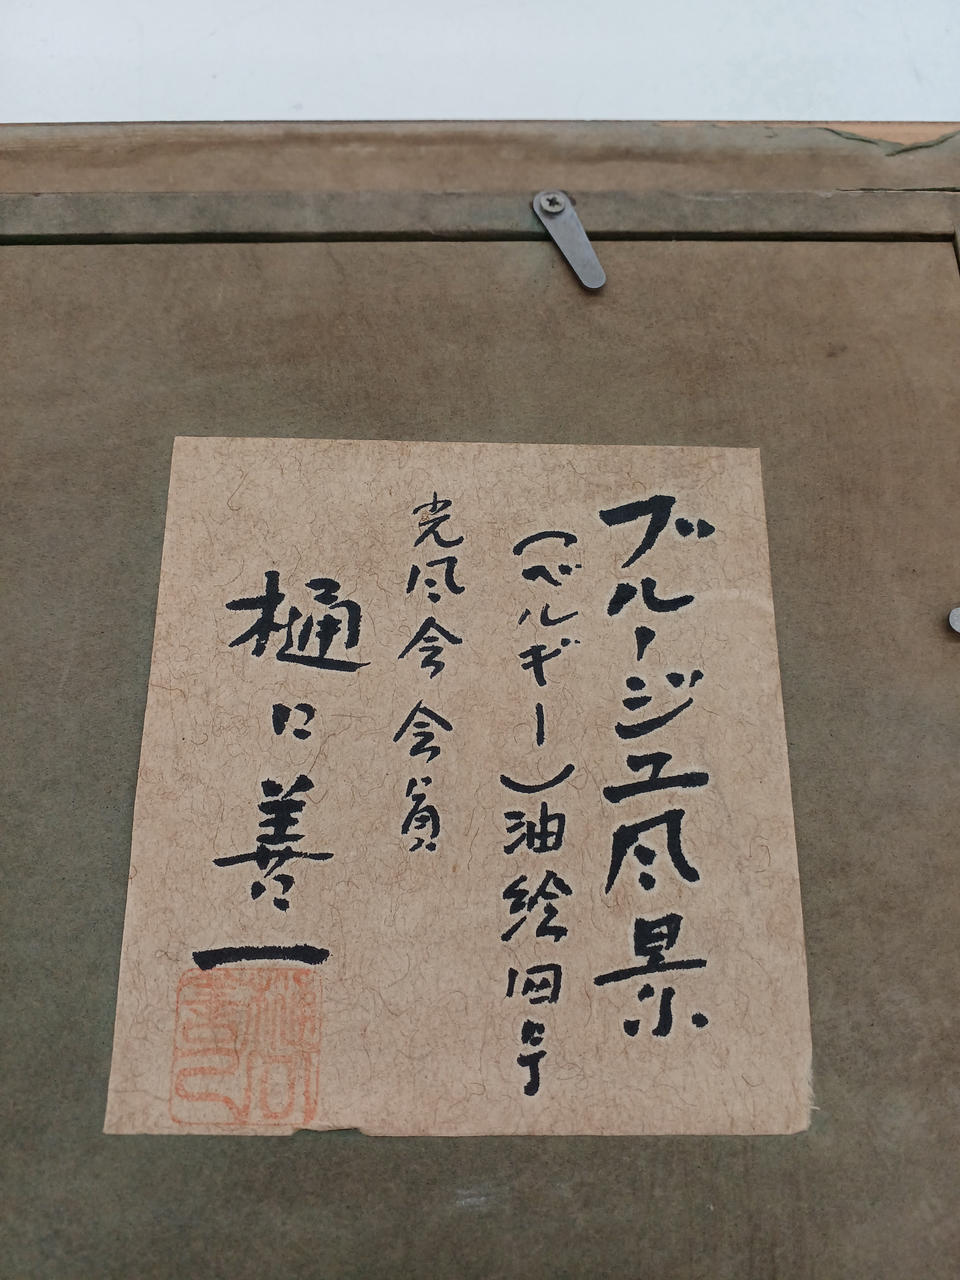 ブルージュ風景
(ベルギー)油絵四号
光風会会員
樋口善一